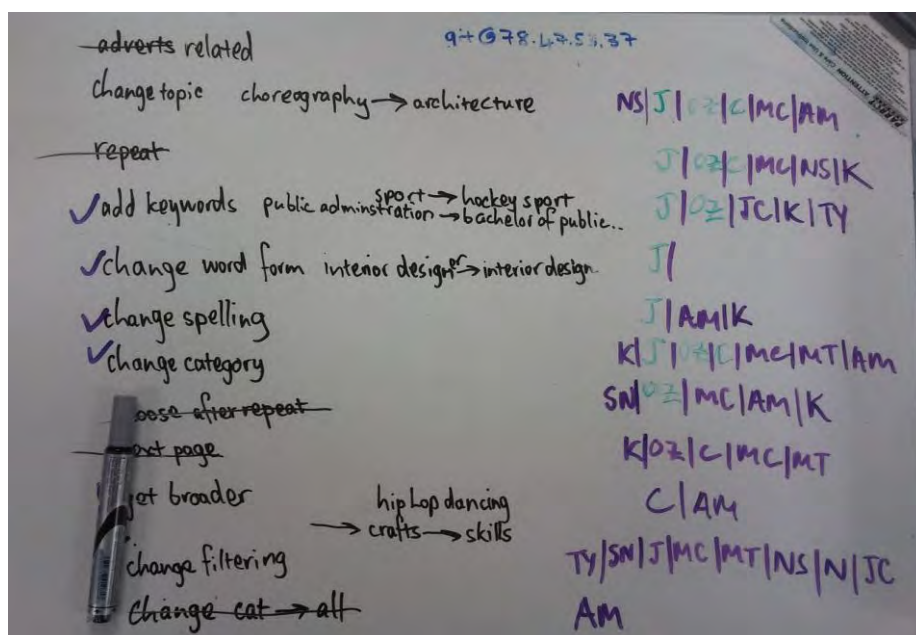 adverts related
change topic choreography → architecture NS|J|OZ|C|MC|AM
repeat J|OZ|C|MC|NS|K
sport → hockey sport
add keywords public adminstration → bachelor of public.. J|OZ|JC|K|TY
change word form interior designer → interior design. J|
change spelling J|AM|K
change category K|J|OZ|C|MC|MT|AM
after repeat SN|OZ|MC|AM|K
page K|OZ|C|MC|MT
broader hip hop dancing C|AM
→ crafts → skills
change filtering TY|SN|J|MC|MT|NS|N|JC
change cat → all AM
ATTENTION